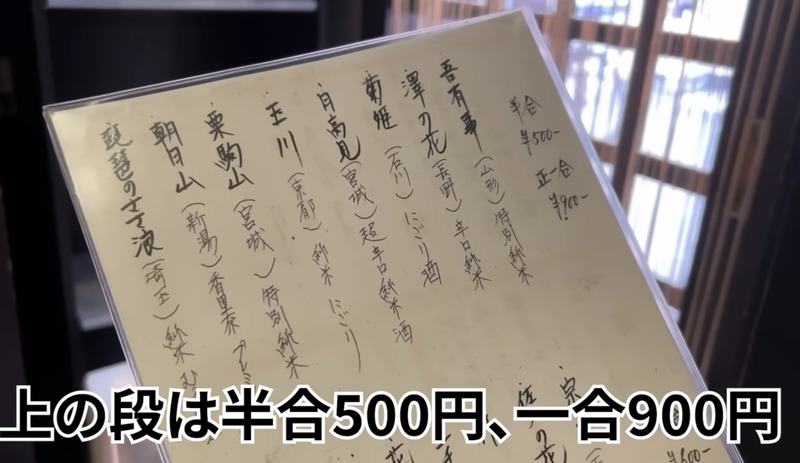 半合
¥500-
正一合
¥900-
吾有事(山形)特別純米
澤の花(長野)辛口純米
菊姫(石川)にごり酒
日高見(宮城)超辛口純米酒
玉川(京都)純米にごり
栗駒山(宮城)特別純米
朝日山(新潟)
琵琶のさゝ浪(埼玉)純米む
¥600-
の花
花
上の段は半合500円、一合900円